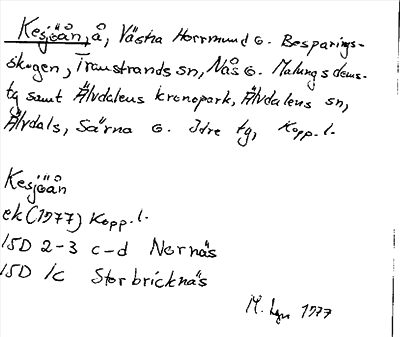 Kesjöån, å, Västra Horrmund o. Besparings-
skogen, Transtrands sn, Nås o. Malungs doms-
tg samt Älvdalens kronopark, Älvdalens sn,
Älvdals, Särna o. Idre tg, Kopp. l.
Kesjöån
ek (1977) Kopp. l.
15D 2-3 c-d Nornäs
15D 1c Storbricknäs
M. 1977